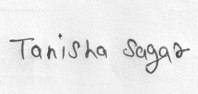 Tanisha Sagar